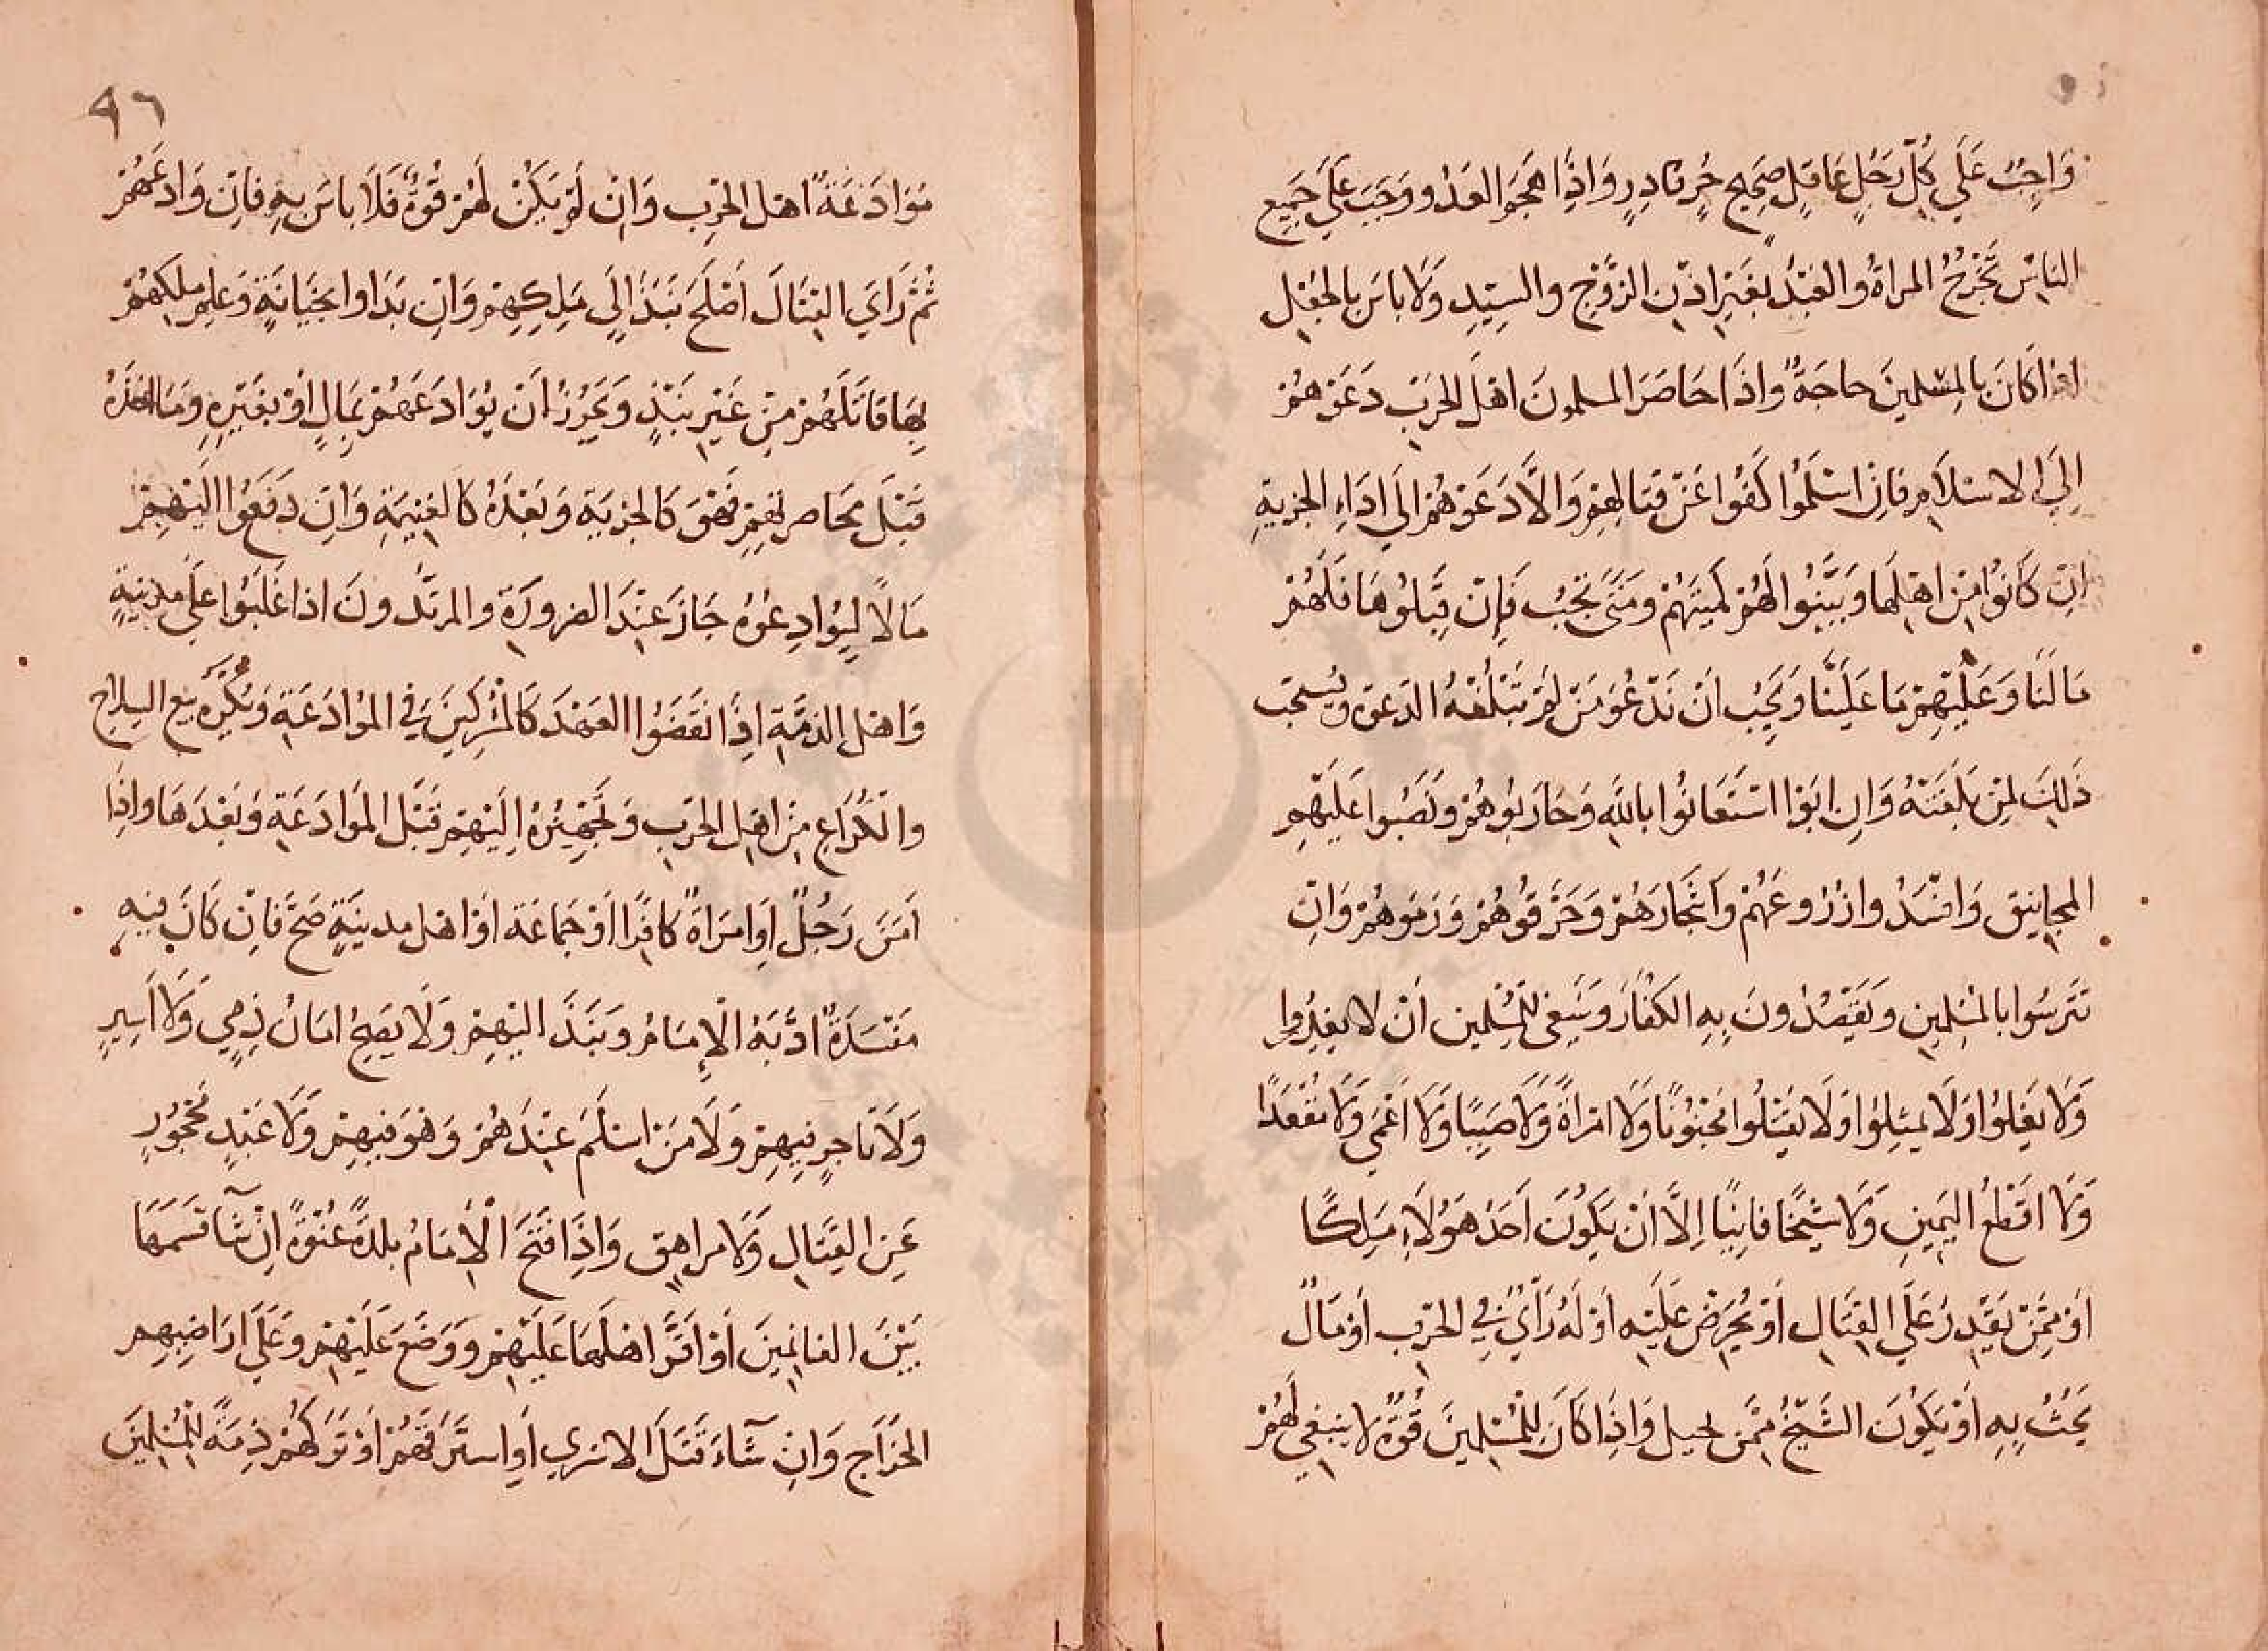 وَاجِبٌ عَلَي كُلِّ رَجُلٍ عَاقِلٍ صَحِيحٍ حُرٍّ قَادِرٍ وَاِذَا هَجَمَ العَدُو وَجَبَ عَلَي جَمِيعِ
النَاسِ تَخْرُجُ المراةُ والعَبْدُ بغَيْرِ اذْنِ الزَّوْجِ والسيّدِ وَلَا باسَ بالجُعْلِ
اذا كَانَ بالمسْلمينَ حاجَةٌ واذَا حَاصَرَ المسلمونَ اهْلَ الحَرْبِ دَعَوْهُمْ
اِلَي الاسْلَامِ فاِنْ اسْلَمُوا كَفُوا عَنْ قتالِهِمْ وَالَّا دَعَوْهُمْ الَي ادَاءِ الجزيةِ
اِنْ كَانُوا مِنْ اهْلِهَا وَبَيَّنُوا لَهُمْ كَمِيَتَهَا وَمَتَي تَجِبُ فَاِنْ قَبِلُوهَا فَلَهُمْ
مَا لَنَا وَعَلَيْهِمْ مَا عَلَيْنَا وَيَجِبُ انْ نَدْعُوَ مَنْ لَمْ تَبْلُغْهُ الدعوة وَيُسْتحَب
ذَلِكَ لِمَنْ بَلَغَتْهُ وَاِن ابَوْا اسْتَعَانُوا باللَّهِ وَحَارَبُوهُمْ وَنَصَبُوا عَلَيْهِم
المجانيق وَافْسَدُوا زُرُوعَهُمْ وَاَشْجَارَهُمْ وَحَرَّقُوهُمْ وَرَمَوهُمْ وَاِنْ
تَتَرسُوا بالمسْلِمِين وَيَقْصُدُونَ بِهِ الكفَّارَ وَيَنْبَغي للمُسْلِمين اَنْ لا يغدِرُوا
وَلَا يَغلوا وَلَا يمثلِوُا وَلَا يَقْتُلُوا مَجْنُونًا وَلَا امْرَاةً وَلَا صَبِيًا وَلَا اَعْمَي وَلَا مُقْعَدًا
وَلَا اقْطَعُ اليَمِينِ وَلَا شَيْخًا فَانِيًا اِلَّا اَنْ يَكُونَ اَحَدُ هَوُلَاءِ مَلِكًا
اَوْ مِمَّنْ يَقْدِرُ عَلَي القِتَالِ اَوْ يُحَرِضُ عَلَيْهِ اَوْ لَهُ رَأيٌ فِي الحَرْبِ اَوْ مَالٌ
يَحُثُّ بِهِ اَوْ يَكُونَ الشَيْخُ مِمَّنْ يحيل وَاِذَا كَانَ للمُسْلِمِينَ قُوَّةٌ لا يَنبغي لَهُمْ
٩٦
مُوَادَعَةُ اهْلِ الحَرْبِ وَاِنْ لَمْ يَكُنْ لَهُمْ قُوَّةٌ فَلَا باسَ بِهِ فاِنْ وَادَعَهُمْ
ثُمَّ رَايَ القِتَالَ اَصْلَحَ نَبَذَ اِلَي مَلِكِهِمْ وَاِنْ بَدَاوا بخِيَانَةٍ وَعَلِمَ مَلِكُهُمْ
بِهَا قَاتَلَهُمْ مِنْ غَيْرِ نَبْذٍ وَيَجُوزُ اَنْ يُوَادَعَهُمْ بِمَالٍ اَوْ بِغَيْرِهِ وَمَا اخذَهُ
قَبْلَ محَاصرتِهِمْ فَهُوَ كَالجِزيَةِ وَبَعْدَهُ كَالغَنِيمَةِ وَاِنْ دَفَعُوا اليْهِمْ
مَالًا لِيُوَادِعُوهُ جَازَ عِنْدَ الضرورَةِ والمرتدُّونَ اذا غَلَبُوا عَلَي مدينةٍ
وَاهْل الذمَّةِ اِذَا نَقَضُوا العَهْدَ كَالْمُشْرِكِينَ فِي المُوادَعَةِ وَيُكْرَه بيع السلاح
والكُرَاعِ مِنْ اهْلِ الحَرْبِ وَتَجْهِيزُهُ اِلَيْهِمْ قَبْلَ المُوَادَعَةِ وَبَعْدَهَا واِذَا
اَمنَ رَجُلٌ اَوِ امرَاةٌ كَافِرًا اَوْ جَمَاعَة اَوْ اهْلَ مدينَةٍ صَحَّ فَاِنْ كَانَ فيهِ
مَفْسَدَةٌ ادَّبَهُ الْاِمَامُ وَنَبَذَ اليْهِمْ وَلَا يَصِحُ امَانُ ذِمِي وَلَا اَسِيرٍ
وَلَا تَاجِرٍ فِيهِمْ وَلَا مَنْ اسْلَمَ عِنْدَهُمْ وَهُوَ فِيهِمْ وَلَا عَبْدٍ مَحْجُورٍ
عَنِ القِتَالِ وَلَا مراهِق وَاِذَا فَتَحَ الْاِمَامُ بلدَةً عُنْوَةً اِنْ شَآ قَسَمَهَا
بَيْنَ الغَانِمِينَ اَوْ اَقَرَّ اهْلَهَا عَلَيْهِمْ وَوَضَعَ عَلَيْهِمْ وَعَلَي ارَاضِيهِم
الخَرَاجِ وَاِنْ شَآءَ قَتَلَ الاسْرَي اَوِ استَرَقَهُمْ اَوْ تَرَكَهُمْ ذِمَةً للمُسْلِمِينَ